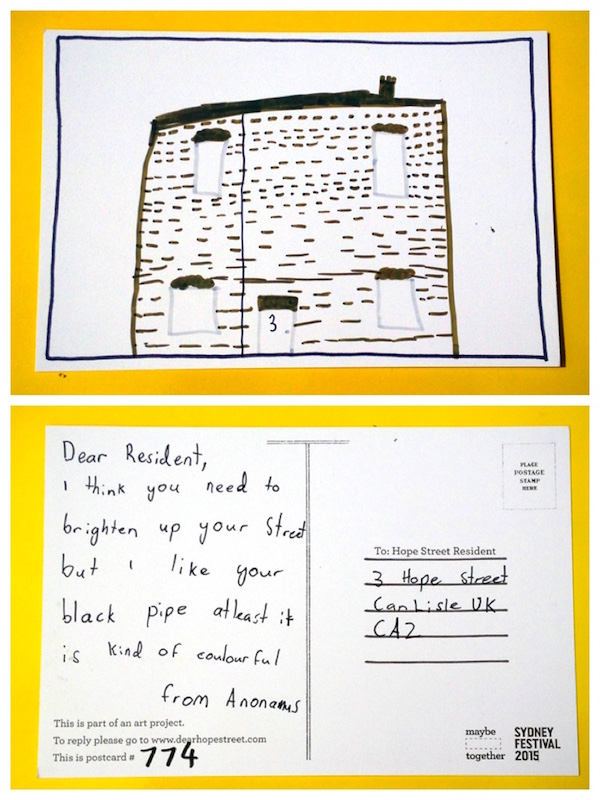 3
Dear Resident,
I think you need to
brighten up your Street
but I like your
black pipe atleast it
is kind of coulourful
from Anonamus
This is part of an art project.
To reply please go to www.dearhopestreet.com
This is postcard # 774
PLACE
POSTAGE
STAMP
HERE
To: Hope Street Resident
3 Hope Street
CanLisle UK
CA2
maybe
together
SYDNEY
FESTIVAL
2015